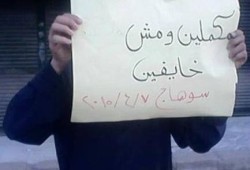 مكملين ومش
خايفين
سوهاج ٢٠١٥/٤/٧